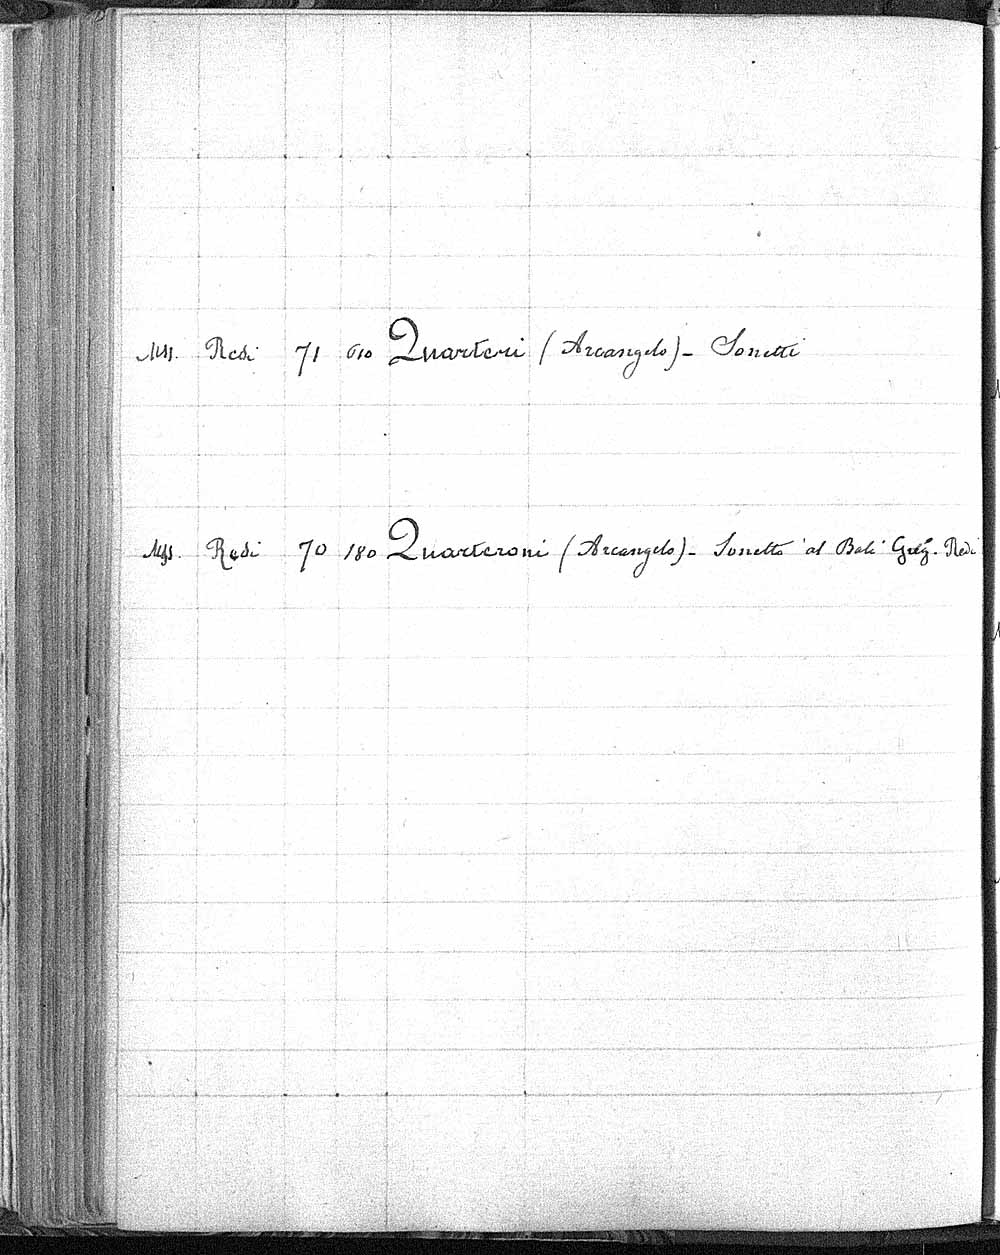 Mss. Redi 71 610 Quarteri (Arcangelo) - Sonetti
Mss. Redi 70 180 Quarteroni (Arcangelo) - Sonetto al Balì Greg. Redi